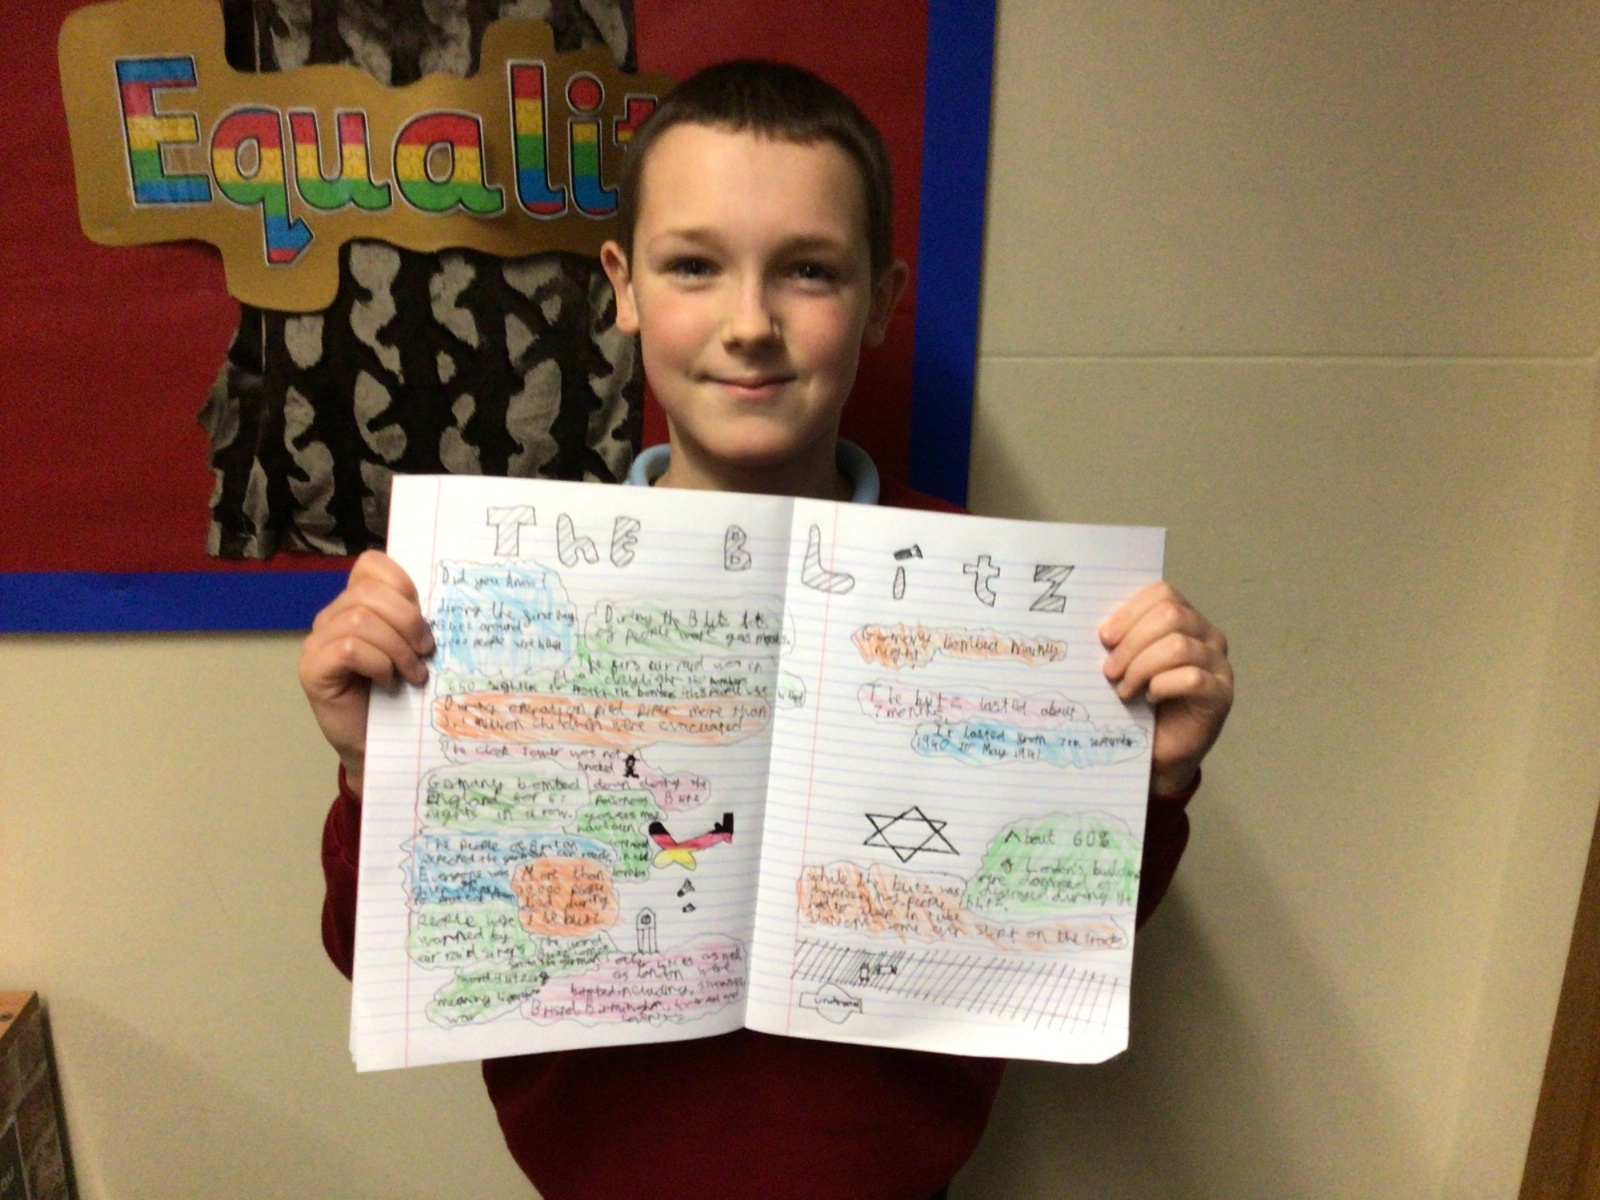 Equalit
The Blitz
Did you know?
during the
Blitz around
people were killed
During the Blitz lots
of people wore gas masks.
The firs air raid was in
daylight
During operation pied piper more than
million children were evacuated
The clock tower was not
down during the
Blitz
Germany bombed
England for 57
nights in a row.
The People of Britan
expected the german air raids.
Everyone was
given
More than
people
died during
the blitz
People were
warned by
air raid sirens
The word
from the german
word Blitzkrieg
meaning lightning
war
other cities as well
as London were
bombed including, Swansea
Bristol, Birmingham, Liverpool and
Germany bombed Mainly
night
The blitz lasted about
7 months
It lasted from 7th september
1940 to May 1941
About 60%
of London's buildings
were damaged or
destroyed during the
blitz.
While the blitz was
happening people
had to sleep in tube
stations some even slept on the tracks